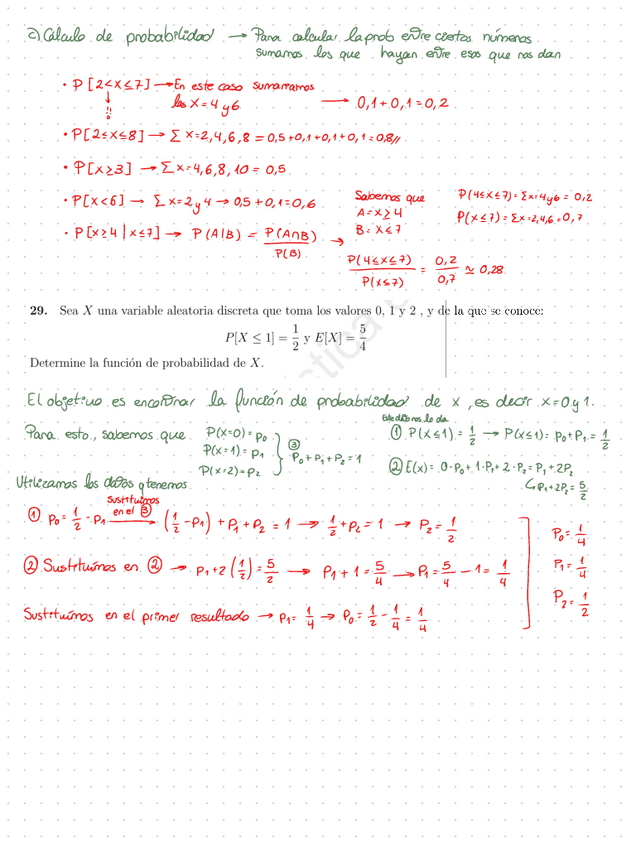 c) Cálculo de probabilidad → Para calcular la prob entre ciertos números
sumamos los que hayan entre esos que nos dan
• P[2<x≤7] → En este caso sumaríamos
los x=4 y 6 → 0,1+0,1=0,2
• P[2≤x≤8] → Σ x=2,4,6,8 = 0,5+0,1+0,1+0,1=0,8//
• P[x≥3] → Σ x=4,6,8,10 = 0,5
• P[x<6] → Σ x=2 y 4 → 0,5+0,1=0,6
• P[x≥4 | x≤7] → P(A|B) = P(A∩B)/P(B) →
Sabemos que
A=x≥4
B=x≤7
P(4≤x≤7)=Σx=4 y 6 = 0,2
P(x≤7)=Σx=2,4,6=0,7
P(4≤x≤7)/P(x≤7) = 0,2/0,7 ≃ 0,28
29. Sea X una variable aleatoria discreta que toma los valores 0, 1 y 2 , y de la que se conoce:
P[X ≤ 1] = 1/2 y E[X] = 5/4
Determine la función de probabilidad de X.
El objetivo es encontrar la función de probabilidad de x, es decir x=0 y 1.
Para esto, sabemos que
P(x=0)=p₀
P(x=1)=p₁
P(x=2)=p₂
③ p₀+p₁+p₂=1
nos lo da
① P(x≤1)=1/2 → P(x≤1)=p₀+p₁=1/2
② E(x)= 0·p₀+1·p₁+2·p₂=p₁+2p₂
↳ p₁+2p₂=5/2
Utilizamos los datos q tenemos
① p₀=1/2-p₁ → sustituimos en el ③ (1/2-p₁)+p₁+p₂=1 → 1/2+p₂=1 → p₂=1/2
② Sustituimos en ② → p₁+2(1/2)=5/2 → p₁+1=5/4 → p₁=5/4-1=1/4
Sustituimos en el primer resultado → p₁=1/4 → p₀=1/2-1/4=1/4
p₀=1/4
p₁=1/4
p₂=1/2